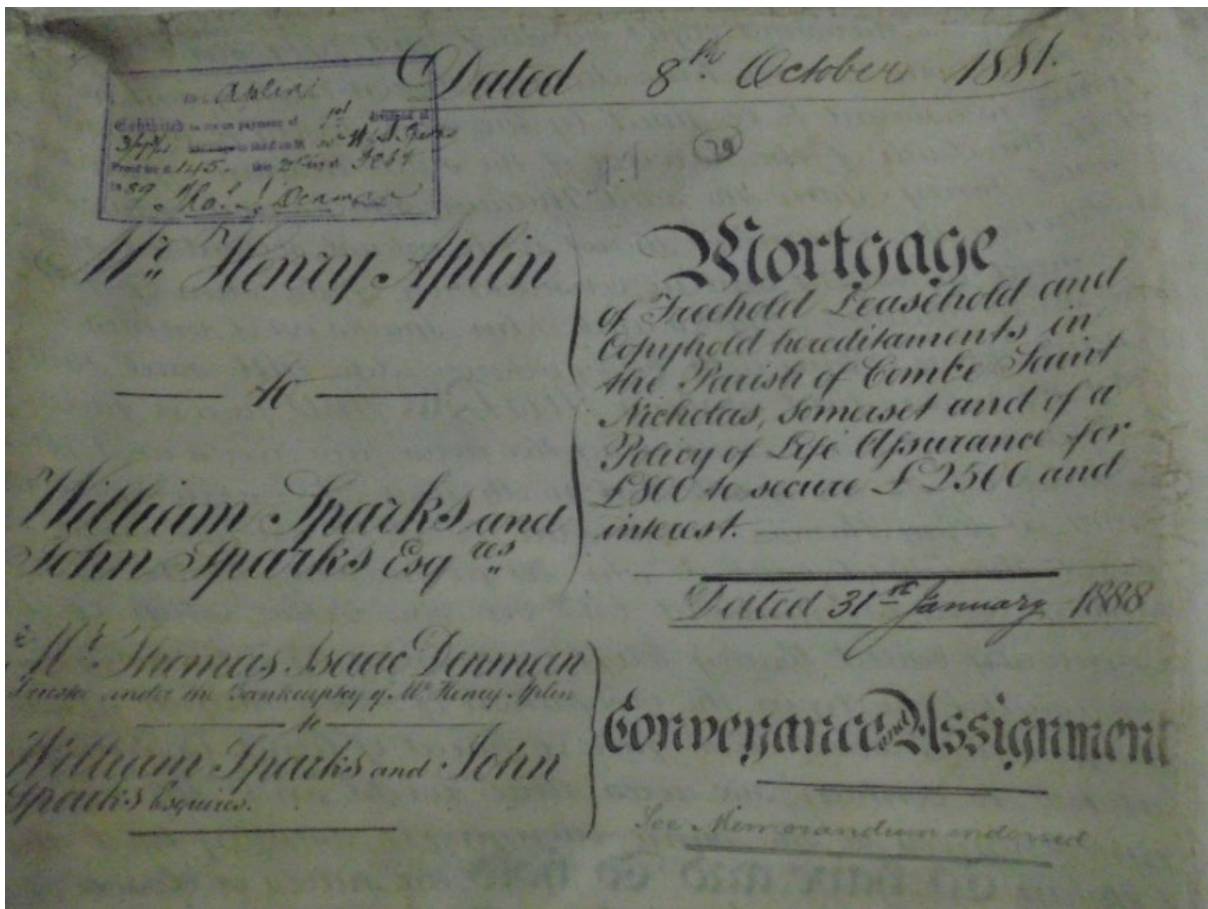 Dated 8th October 1881.
Aplin
Exhibited to me on payment of 1st dividend of
Proof for £ 145. this day of Feby
1889. Thos. I Denman
29
Mr. Henry Aplin
to
William Sparks and
John Sparks Esqres
Mortgage
of Freehold Leasehold and
Copyhold hereditaments in
the Parish of Combe Saint
Nicholas, Somerset and of a
Policy of Life Assurance for
£800 to secure £2500 and
interest.
Dated 31st January 1888
Mr. Thomas Isaac Denman
Trustee under the Bankruptcy of Mr Henry Aplin
to
William Sparks and John
Sparks Esquires.
Conveyance and Assignment
See Memorandum endorsed